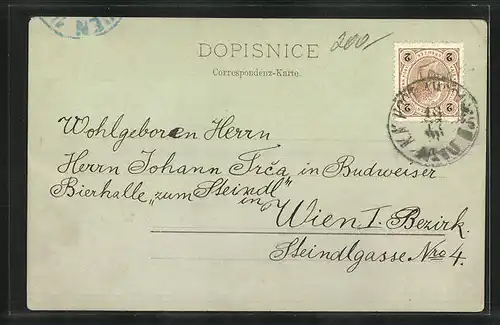 UEN
200/-
DOPISNICE
Correspondenz-Karte.
2 2
2 2
Wohlgeboren Herrn
Herrn Johann Trča, in Budweiser
Bierhalle „zum Steindl"
in Wien I. Bezirk.
Steindlgasse Nro 4.